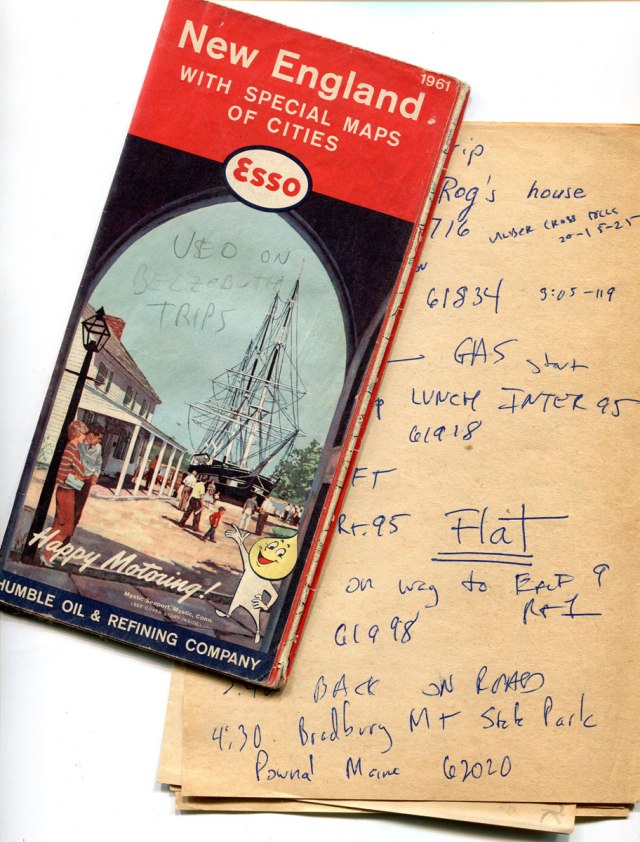 New England
1961
WITH SPECIAL MAPS
OF CITIES
Esso
USED ON
TRIPS
Happy Motoring!
Mystic Seaport, Mystic, Conn.
(SEE COVER STORY INSIDE)
HUMBLE OIL & REFINING COMPANY
rip
Rog's house
716
20-15-25
61834 3:05-119
GAS start
p LUNCH INTER 95
61918
FT
Rt. 95 Flat
on way to Exit 9
Rt 1
61998
BACK ON ROAD
4:30 Bradbury Mt State Park
Pownal Maine 62020